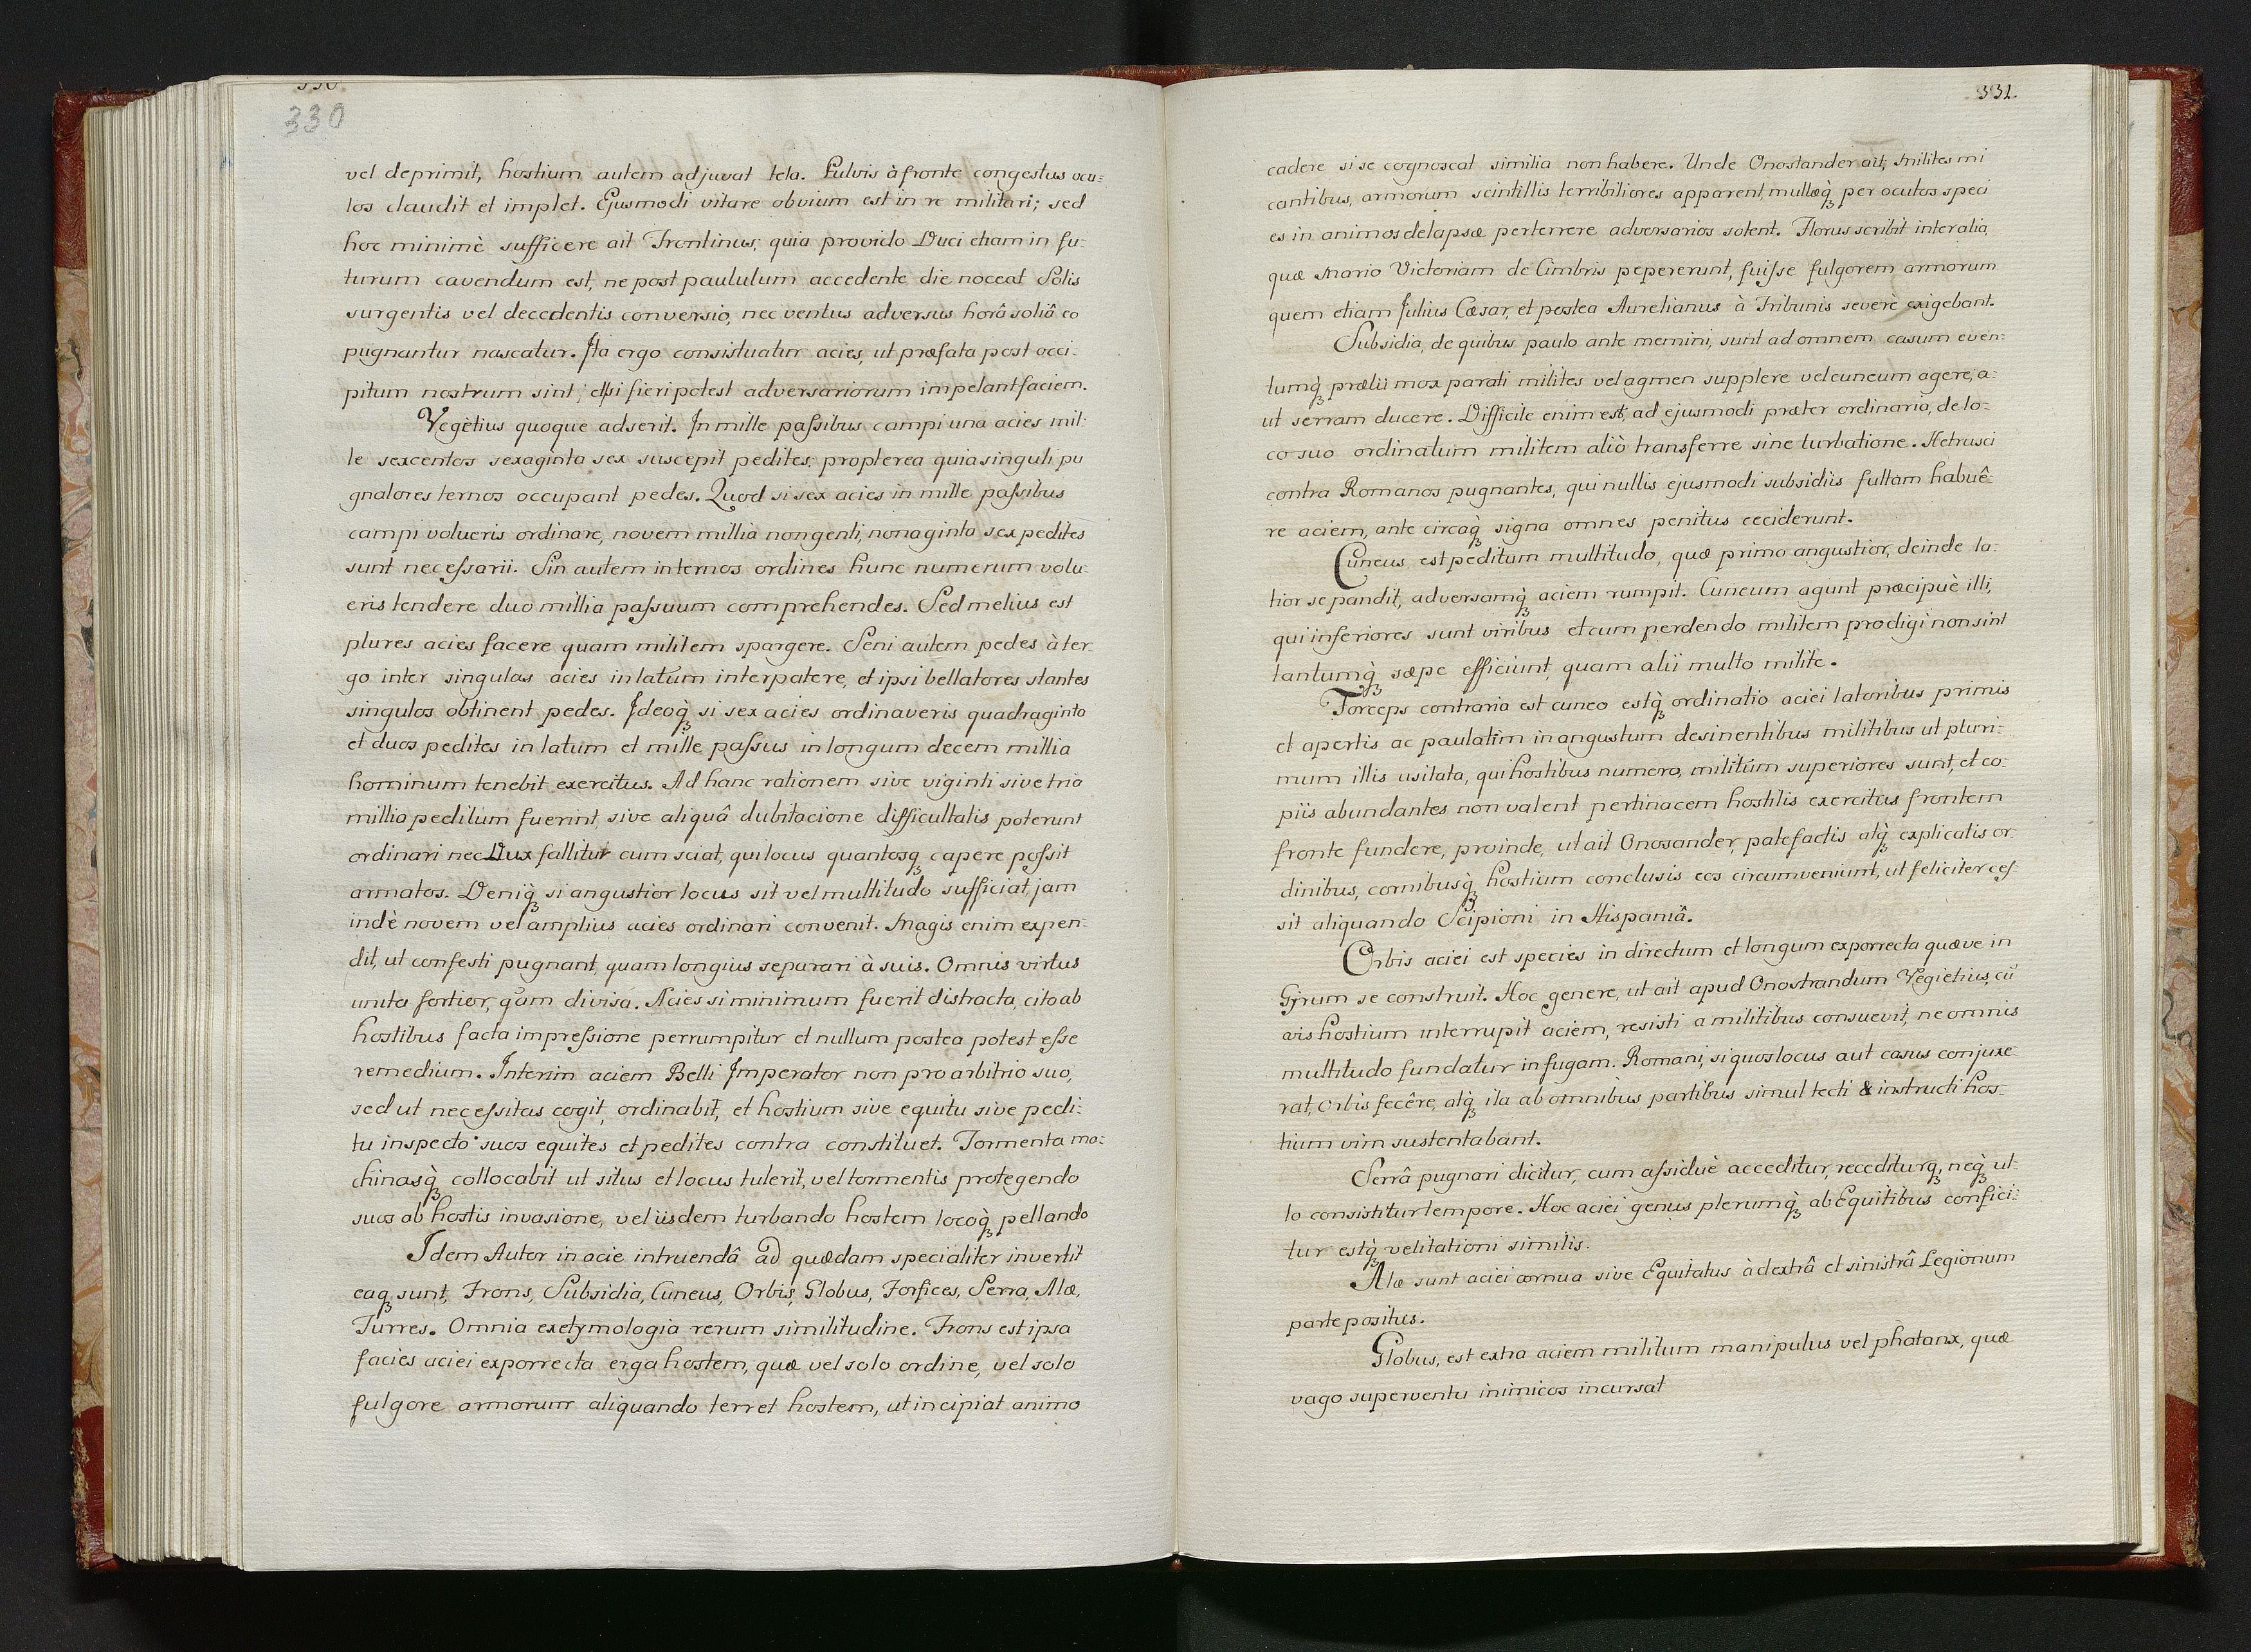 330
vel deprimit, hostium autem adjuvat tela. Pulvis à fronte congestus ocu=
los claudit et implet. Ejusmodi vitare obvium est in re militari; sed
hoc minimè sufficere ait Frontinus; quia provido Duci etiam in fu=
turum cavendum est, ne post paululum accedente die noceat Solis
surgentis vel decedentis conversio, nec ventus adversus horâ soliâ eo
pugnantur nascatur. Ita ergo consistuatur acies, ut præfata post occi=
pitum nostrum sint, etsi fieri potest adversariorum impelant faciem.
Vegetius quoque adserit. In mille passibus campi una acies mil=
le sexcentos sexaginta sex suscepit pedites; propterea quia singuli pu
gnatores ternos occupant pedes. Quod si sex acies in mille passibus
campi volueris ordinare, novem millia nongenti, nonaginta sex pedites
sunt necessarii. Sin autem in ternos ordines hunc numerum volu=
eris tendere duo millia passuum comprehendes. Sed melius est
plures acies facere quam militem spargere. Seni autem pedes à ter
go inter singulas acies in latum interpatere, et ipsi bellatores stantes
singulos obtinent pedes. Ideoq́ꝫ si sex acies ordinaveris quadraginta
et duos pedites in latum et mille passus in longum decem millia
hominum tenebit exercitus. Ad hanc rationem sive viginti sive tria
millia peditum fuerint, sive aliquâ dubitacione difficultatis poterunt
ordinari nec Dux fallitur cum sciat, qui locus quantosqꝫ capere possit
armatos. Deniq́ꝫ si angustior locus sit vel multitudo sufficiat, jam
indè novem vel amplius acies ordinari convenit. Magis enim expen=
dit, ut confesti pugnant, quam longius separari à suis. Omnis virtus
unita fortior, qùam divisa. Acies si minimum fuerit distracta, cito ab
hostibus facta impressione perrumpitur et nullum postea potest esse
remedium. Interim aciem Belli Imperator non pro arbitrio suo,
sed ut necessitas cogit, ordinabit, et hostium sive equitu sive pedi=
tu inspecto suos equites et pedites contra constituet. Tormenta ma=
chinasq́ꝫ collocabit ut situs et locus tulerit, vel tormentis protegendo
suos ab hostis invasione, vel iisdem turbando hostem locoq́ꝫ pellando
Idem Autor in acie intruendâ ad quædam specialiter invertit
eaqꝫ sunt, Frons, Subsidia, Cuneus, Orbis, Globus, Forfices, Serra, Alæ,
Turres. Omnia exetymologia rerum similitudine. Frons est ipsa
facies aciei exporrecta erga hostem, quæ vel solo ordine, vel solo
fulgore armorum aliquando terret hostem, ut incipiat animo
331.
cadere si se cognoscat similia non habere. Unde Onostander ait; Milites mi
cantibus, armorum scintillis terribiliores apparent, mullæq́ꝫ per oculos speci
es in animos delapsæ perterrere adversarios solent. Florus scribit inter alia,
quæ Mario Victoriam de Cimbris pepererunt, fuisse fulgorem armorum
quem etiam Julius Cæsar, et postea Aurelianus à Tribunis severè exigebant.
Subsidia, de quibus paulo ante memini, sunt ad omnem casum even=
tumq́ꝫ prælii mox parati milites vel agmen supplere vel cuneum agere, a=
ut serram ducere. Difficile enim est, ad ejusmodi præter ordinaria, de lo=
co suo ordinatum militem aliò transferre sine turbatione. Hetrusci
contra Romanos pugnantes, qui nullis ejusmodi subsidiis fultam habuê=
re aciem, ante circaq́ꝫ signa omnes penitus ceciderunt.
Cuneus est peditum multitudo, quæ primo angustior, deinde la=
tior se pandit, adversamq́ꝫ aciem rumpit. Cuneum agunt præcipuè illi,
qui inferiores sunt viribus et cum perdendo militem prodigi non sint
tantumq́ꝫ sæpe efficiunt, quam alii multo milite.
Forceps contraria est cuneo estq́ꝫ ordinatio aciei latoribus primis
et apertis ac paulatìm in angustum desinentibus militibus ut pluri=
mum illis usitata, qui hostibus numero, militúm superiores sunt, et co=
piis abundantes non valent pertinacem hostilis exercitus frontem
fronte fundere, proinde, ut ait Onosander, patefactis atq́ꝫ explicatis or=
dinibus, cornibusq́ꝫ hostium conclusis eos circumveniunt, ut feliciter ces=
sit aliquando Scipioni in Hispaniâ.
Orbis aciei est species in directum et longum exporrecta quæve in
Gyrum se construit. Hoc genere, ut ait apud Onostrandum Vegietius, cū
vis hostium interrupit aciem, resisti a militibus consuevit, ne omnis
multitudo fundatur in fugam. Romani, si quos locus aut casus conjuxe=
rat, Orbis fecêre, atq́ꝫ ita ab omnibus partibus simul tecti & instructi hos=
tium vim sustentabant.
Serrâ pugnari dicitur, cum assiduè acceditur, recediturqꝫ, neq́ꝫ ul=
lo consistitur tempore. Hoc aciei genus plerumq́ꝫ ab Equitibus confici=
tur estq́ꝫ velitationi similis.
Alæ sunt aciei cornua sive Equitatus à dextrâ et sinistrâ Legionum
parte positus.
Globus, est extra aciem militum manipulus vel phalanx, quæ
vago superventu inimicos incursat